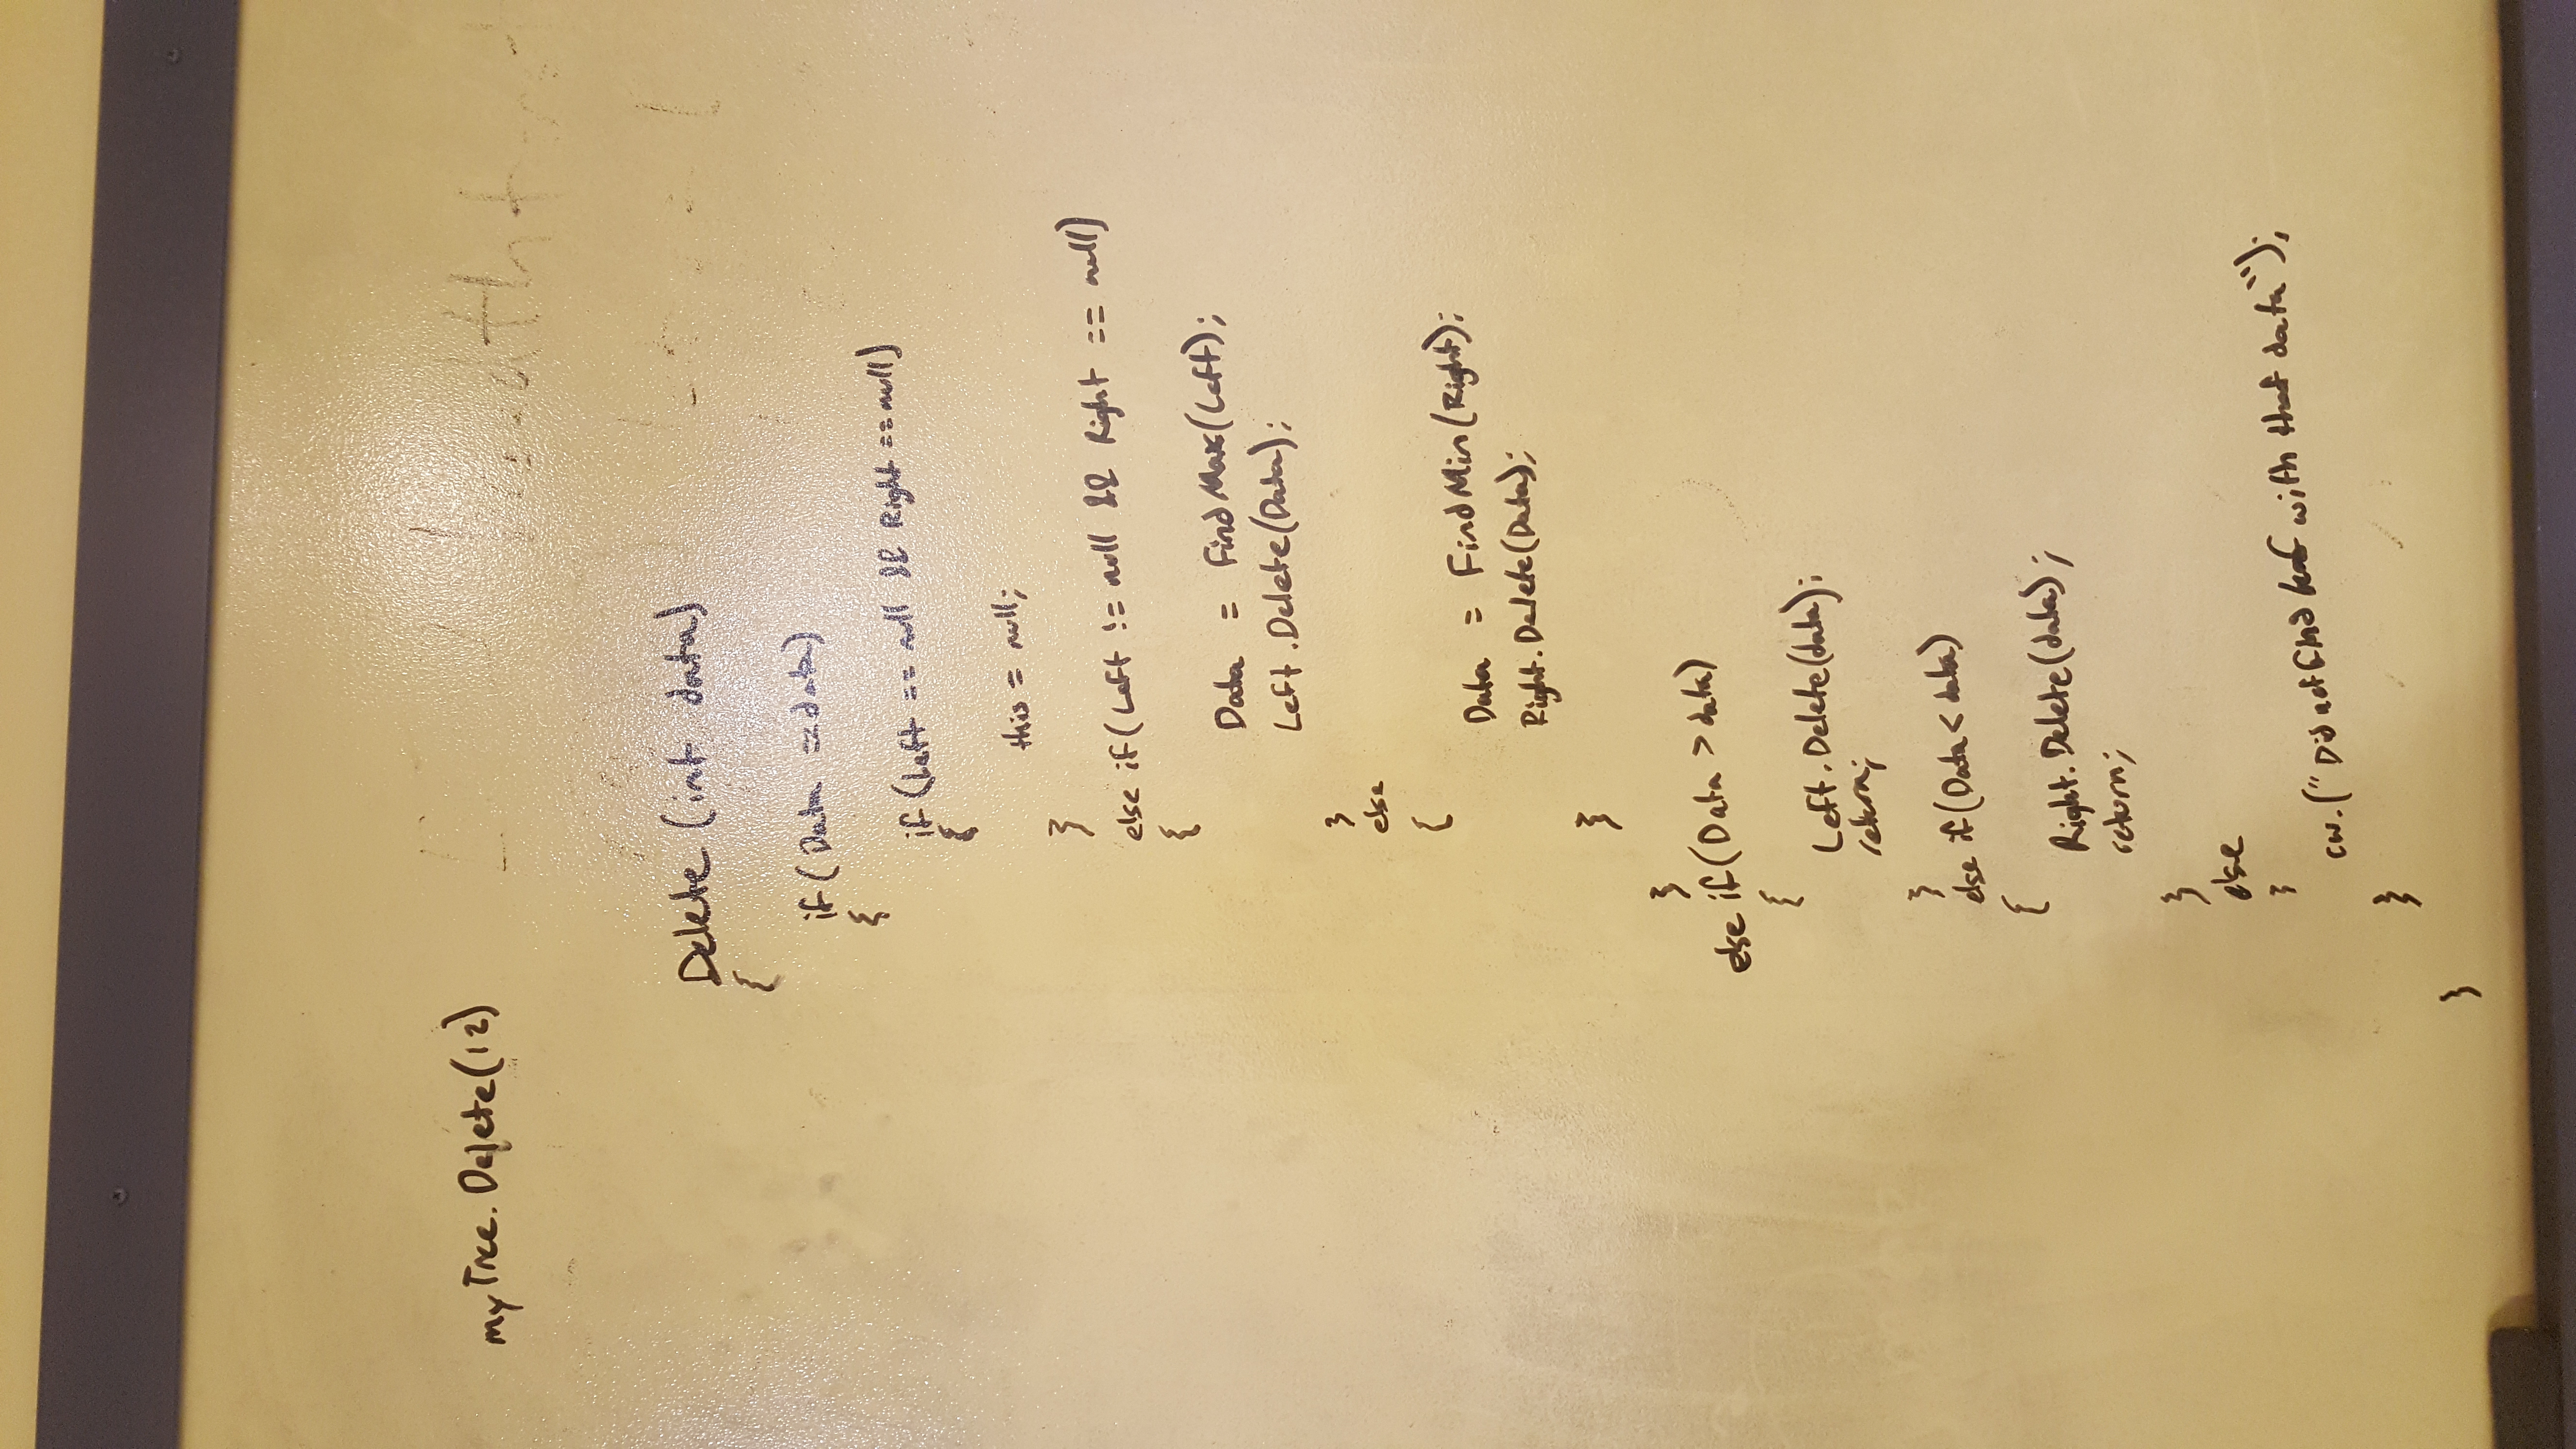 myTree.Delete(12)
Delete (int data)
{
if (Data == data)
{
if (Left == null && Right == null)
{
this = null;
}
else if (Left != null && Right == null)
{
Data = FindMax(Left);
Left.Delete(Data);
}
else
{
Data = FindMin(Right);
Right.Delete(Data);
}
}
else if (Data > data)
{
Left.Delete(data);
return;
}
else if (Data < data)
{
Right.Delete(data);
return;
}
else
}
cw.("Did not find leaf with that data");
}
}